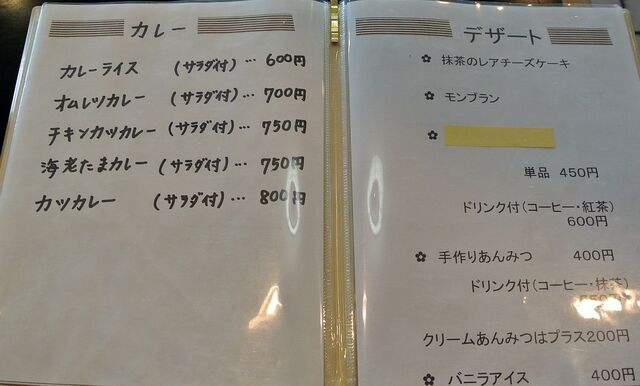 カレー
カレーライス (サラダ付) … 600円
オムレツカレー (サラダ付) … 700円
チキンカツカレー (サラダ付) … 750円
海老たまカレー (サラダ付) … 750円
カツカレー (サラダ付) … 800円
デザート
✿ 抹茶のレアチーズケーキ
✿ モンブラン
✿
単品 450円
ドリンク付(コーヒー・紅茶)
600円
✿ 手作りあんみつ 400円
ドリンク付(コーヒー・抹茶)
クリームあんみつはプラス200円
✿ バニラアイス 400円